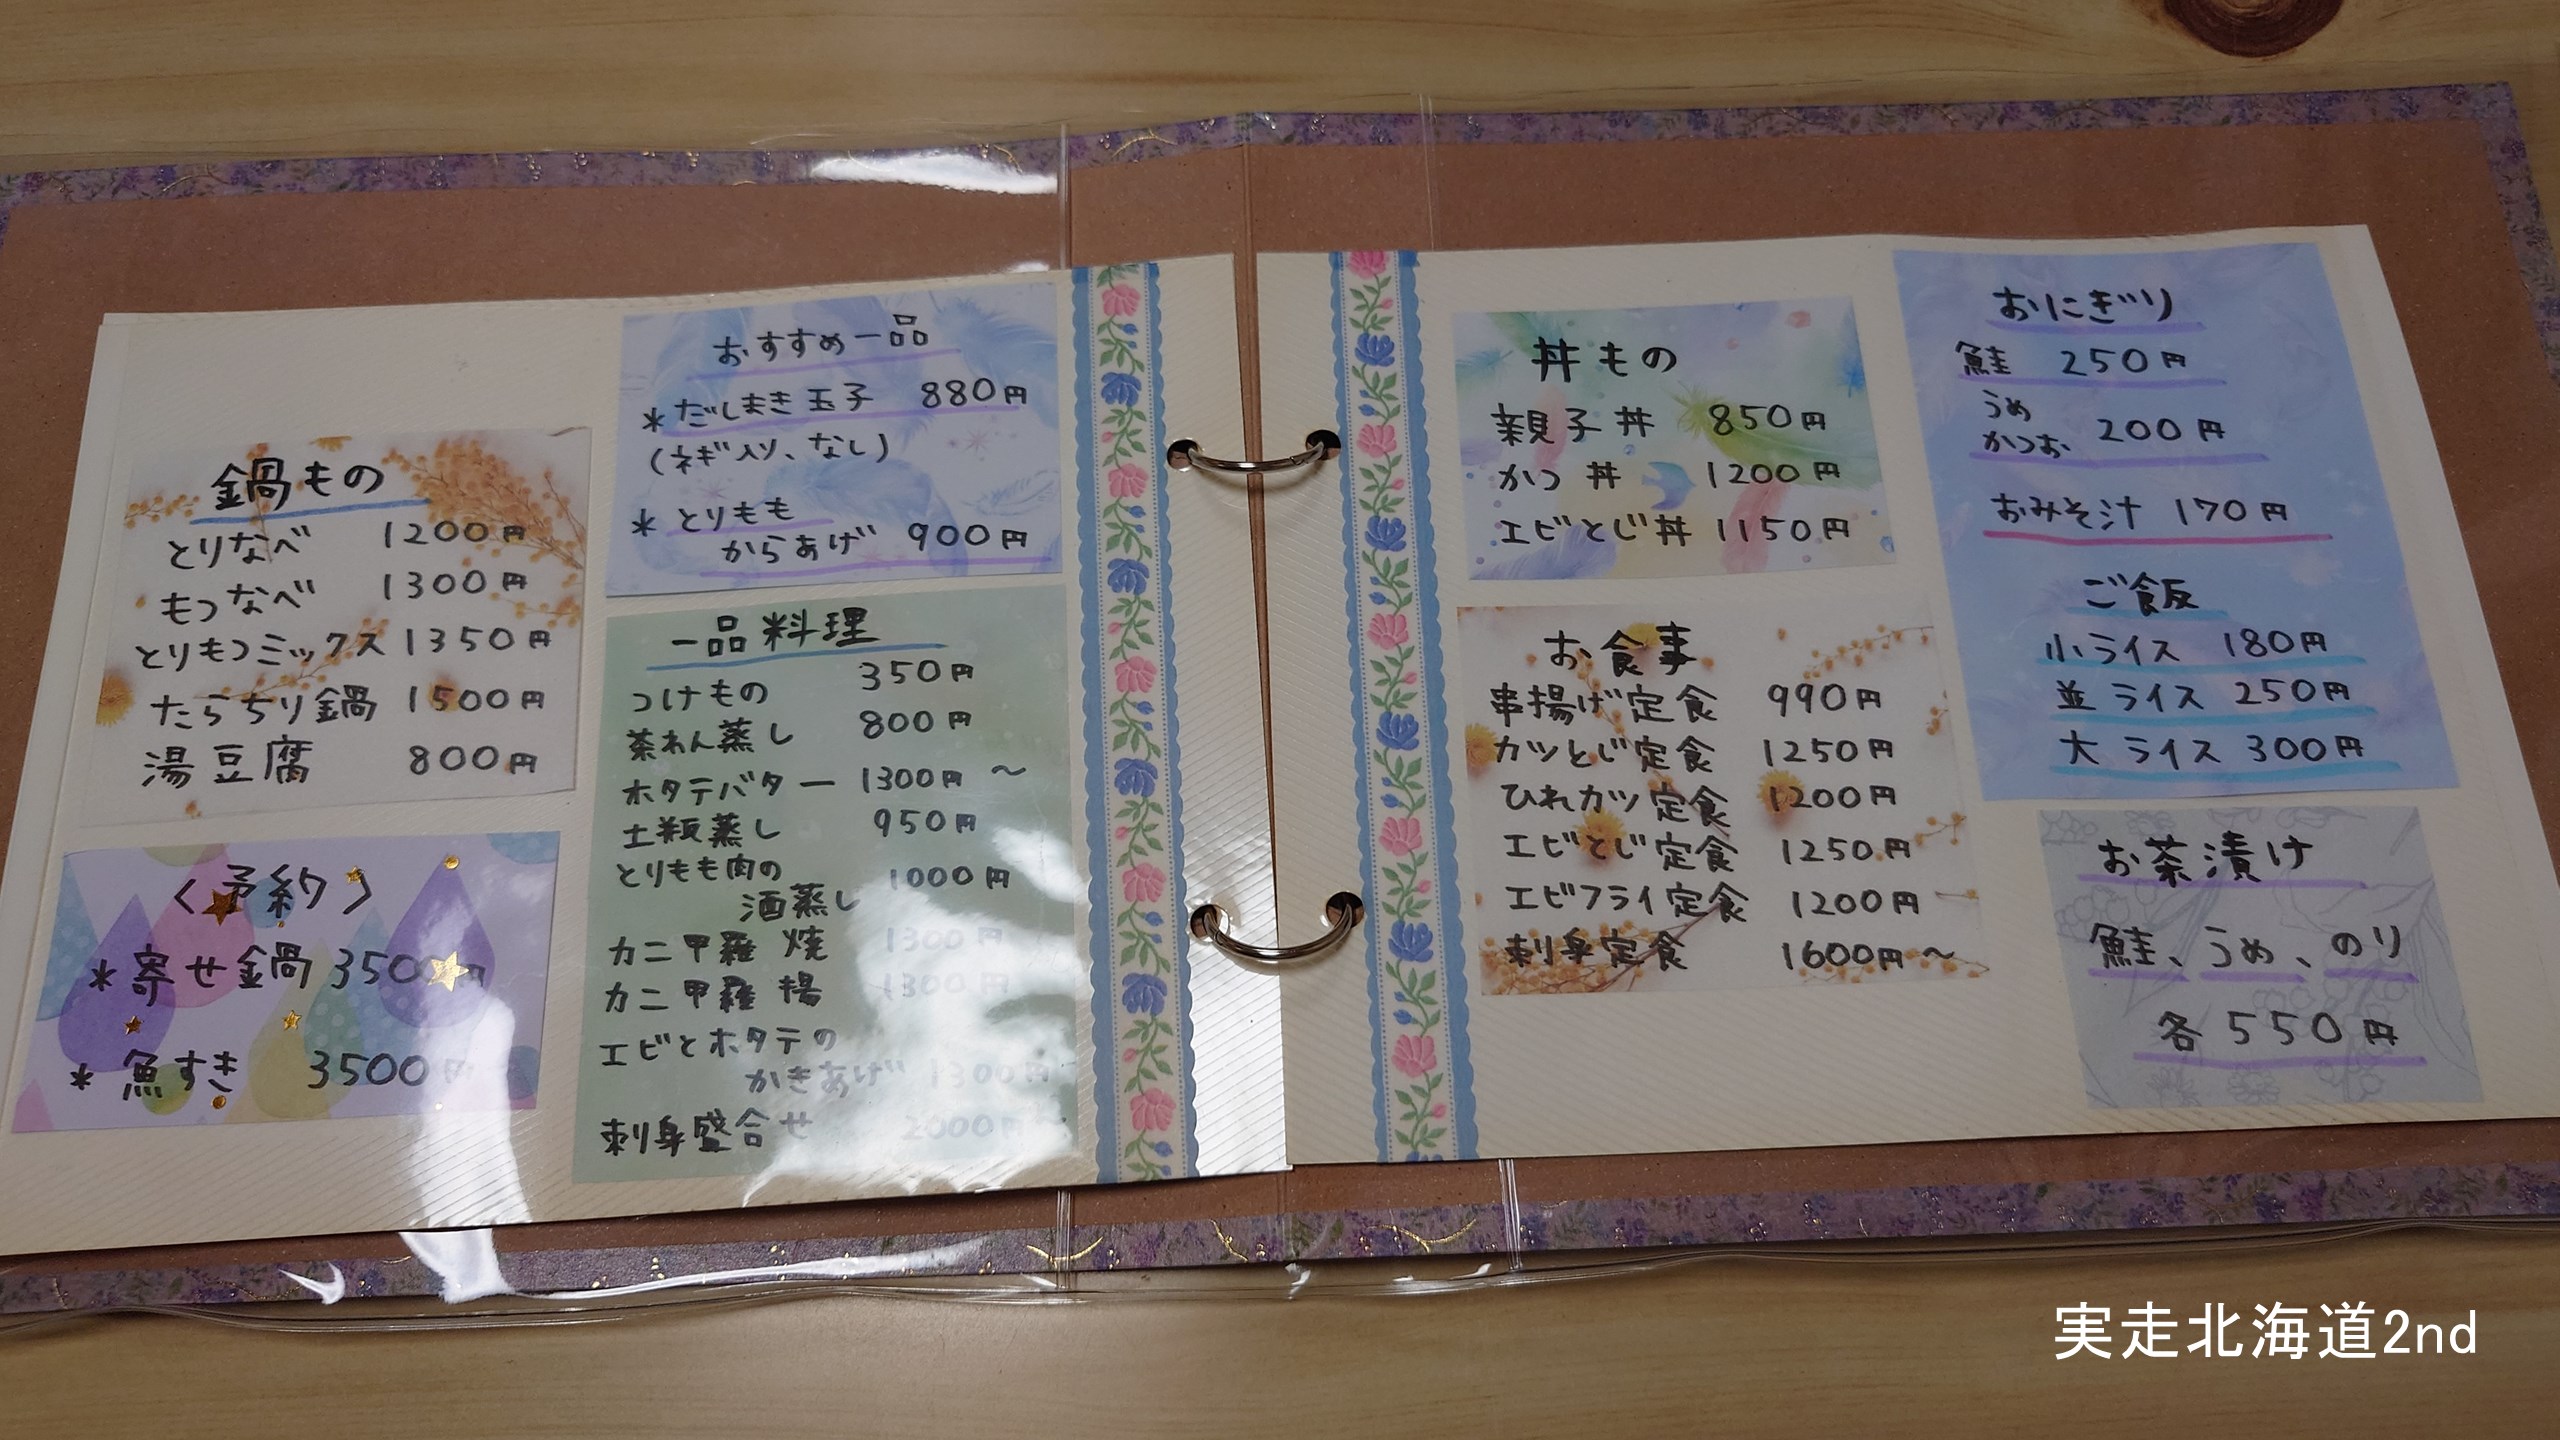 鍋もの
とりなべ 1200円
もつなべ 1300円
とりもつミックス 1350円
たらちり鍋 1500円
湯豆腐 800円
〈予約〉
*寄せ鍋 3500円
*魚すき 3500円
おすすめ一品
*だしまき玉子 880円
(ネギ入り、なし)
*とりもも
からあげ 900円
一品料理
つけもの 350円
茶わん蒸し 800円
ホタテバター 1300円~
土瓶蒸し 950円
とりもも肉の
酒蒸し 1000円
カニ甲羅焼 1300円
カニ甲羅揚 1300円
エビとホタテの
かきあげ 1300円
刺身盛合せ 2000円
丼もの
親子丼 850円
かつ丼 1200円
エビとじ丼 1150円
お食事
串揚げ定食 990円
カツとじ定食 1250円
ひれカツ定食 1200円
エビとじ定食 1250円
エビフライ定食 1200円
刺身定食 1600円~
おにぎり
鮭 250円
うめ
かつお 200円
おみそ汁 170円
ご飯
小ライス 180円
並ライス 250円
大ライス 300円
お茶漬け
鮭、うめ、のり
各550円
実走北海道2nd